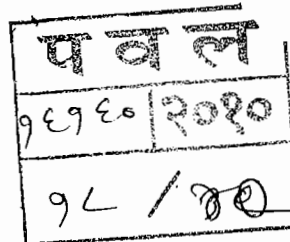 पवल
१६१६० २०१०
१८ /